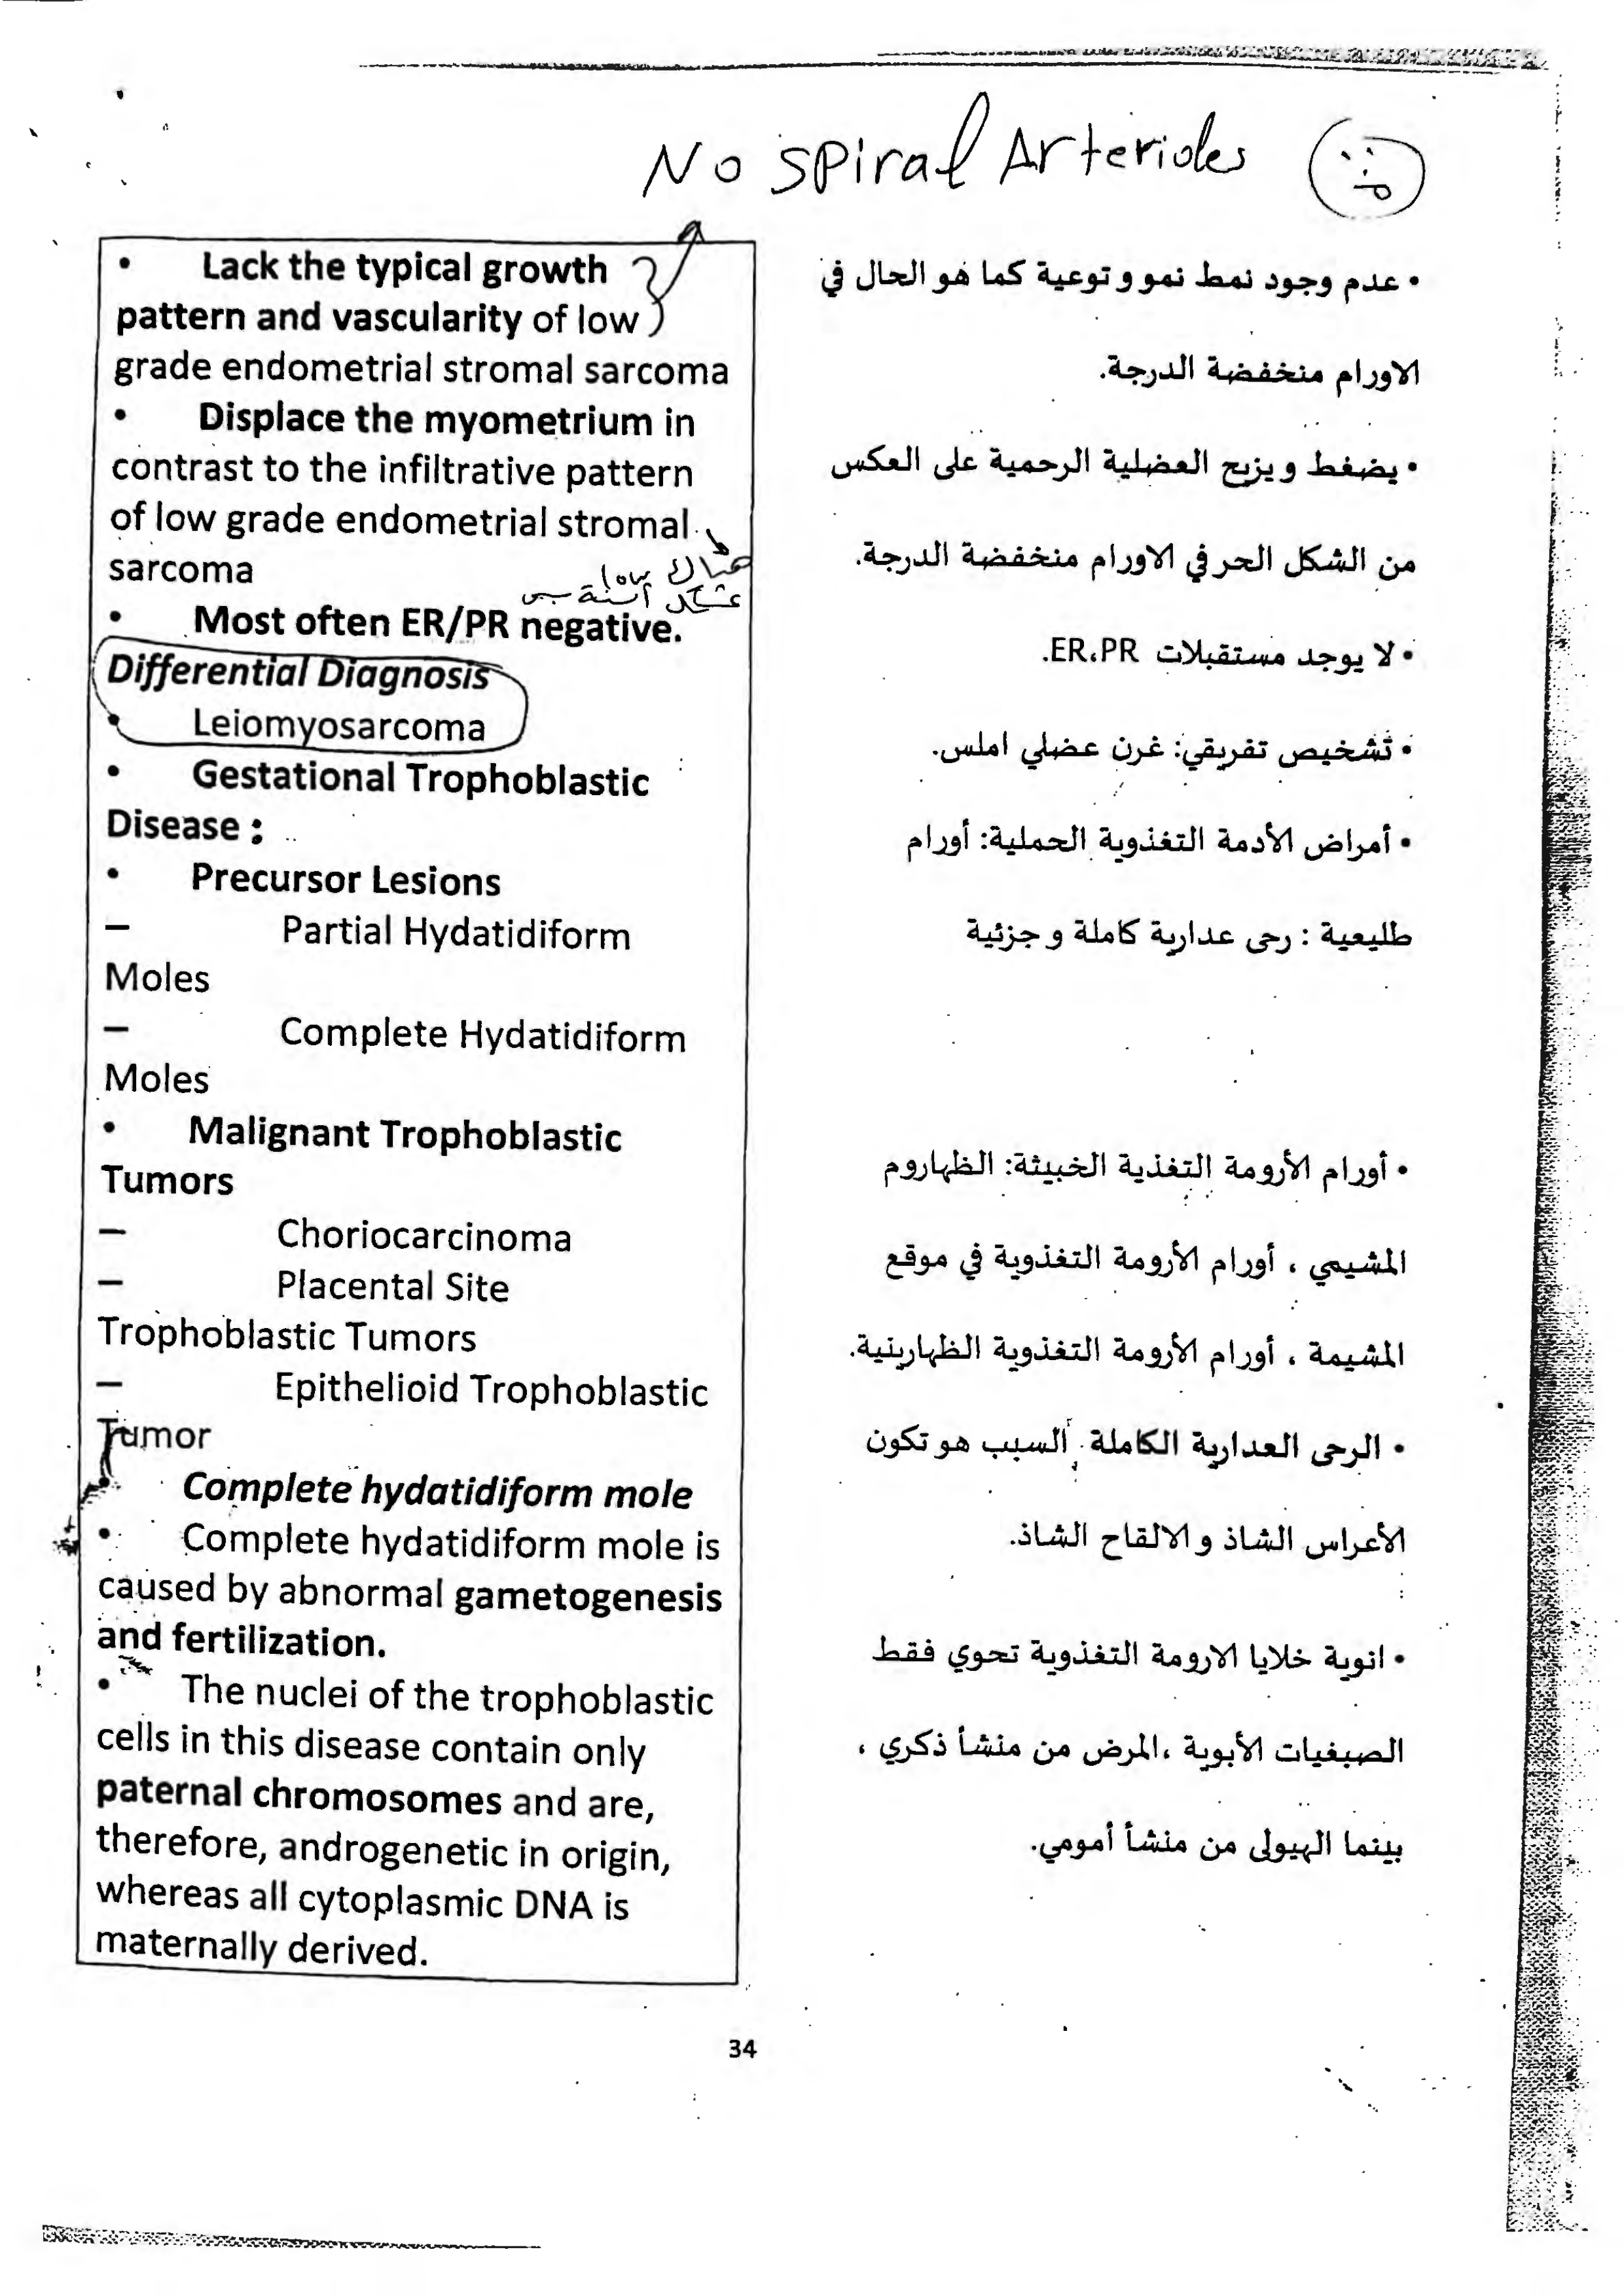 No Spiral Arterioles
• Lack the typical growth
pattern and vascularity of low
grade endometrial stromal sarcoma
• Displace the myometrium in
contrast to the infiltrative pattern
of low grade endometrial stromal
sarcoma
هناك low
• Most often ER/PR negative.
Differential Diagnosis
• Leiomyosarcoma
• Gestational Trophoblastic
Disease :
• Precursor Lesions
– Partial Hydatidiform
Moles
– Complete Hydatidiform
Moles
• Malignant Trophoblastic
Tumors
– Choriocarcinoma
– Placental Site
Trophoblastic Tumors
– Epithelioid Trophoblastic
Tumor
• Complete hydatidiform mole
• Complete hydatidiform mole is
caused by abnormal gametogenesis
and fertilization.
• The nuclei of the trophoblastic
cells in this disease contain only
paternal chromosomes and are,
therefore, androgenetic in origin,
whereas all cytoplasmic DNA is
maternally derived.
• عدم وجود نمط نمو و توعية كما هو الحال في
الاورام منخفضة الدرجة.
• يضغط و يزيح العضلية الرحمية على العكس
من الشكل الحر في الاورام منخفضة الدرجة.
• لا يوجد مستقبلات ER،PR.
• تشخيص تفريقي: غرن عضلي املس.
• أمراض الأدمة التغذوية الحملية: أورام
طليعية : رحى عدارية كاملة و جزئية
• أورام الأرومة التغذية الخبيثة: الظهاروم
المشيمي ، أورام الأرومة التغذوية في موقع
المشيمة ، أورام الأرومة التغذوية الظهارينية.
• الرحى العدارية الكاملة السبب هو تكون
الأعراس الشاذ و الالقاح الشاذ.
• انوية خلايا الارومة التغذوية تحوي فقط
الصبغيات الأبوية ،المرض من منشأ ذكري ،
بينما الهيولى من منشأ أمومي.
34